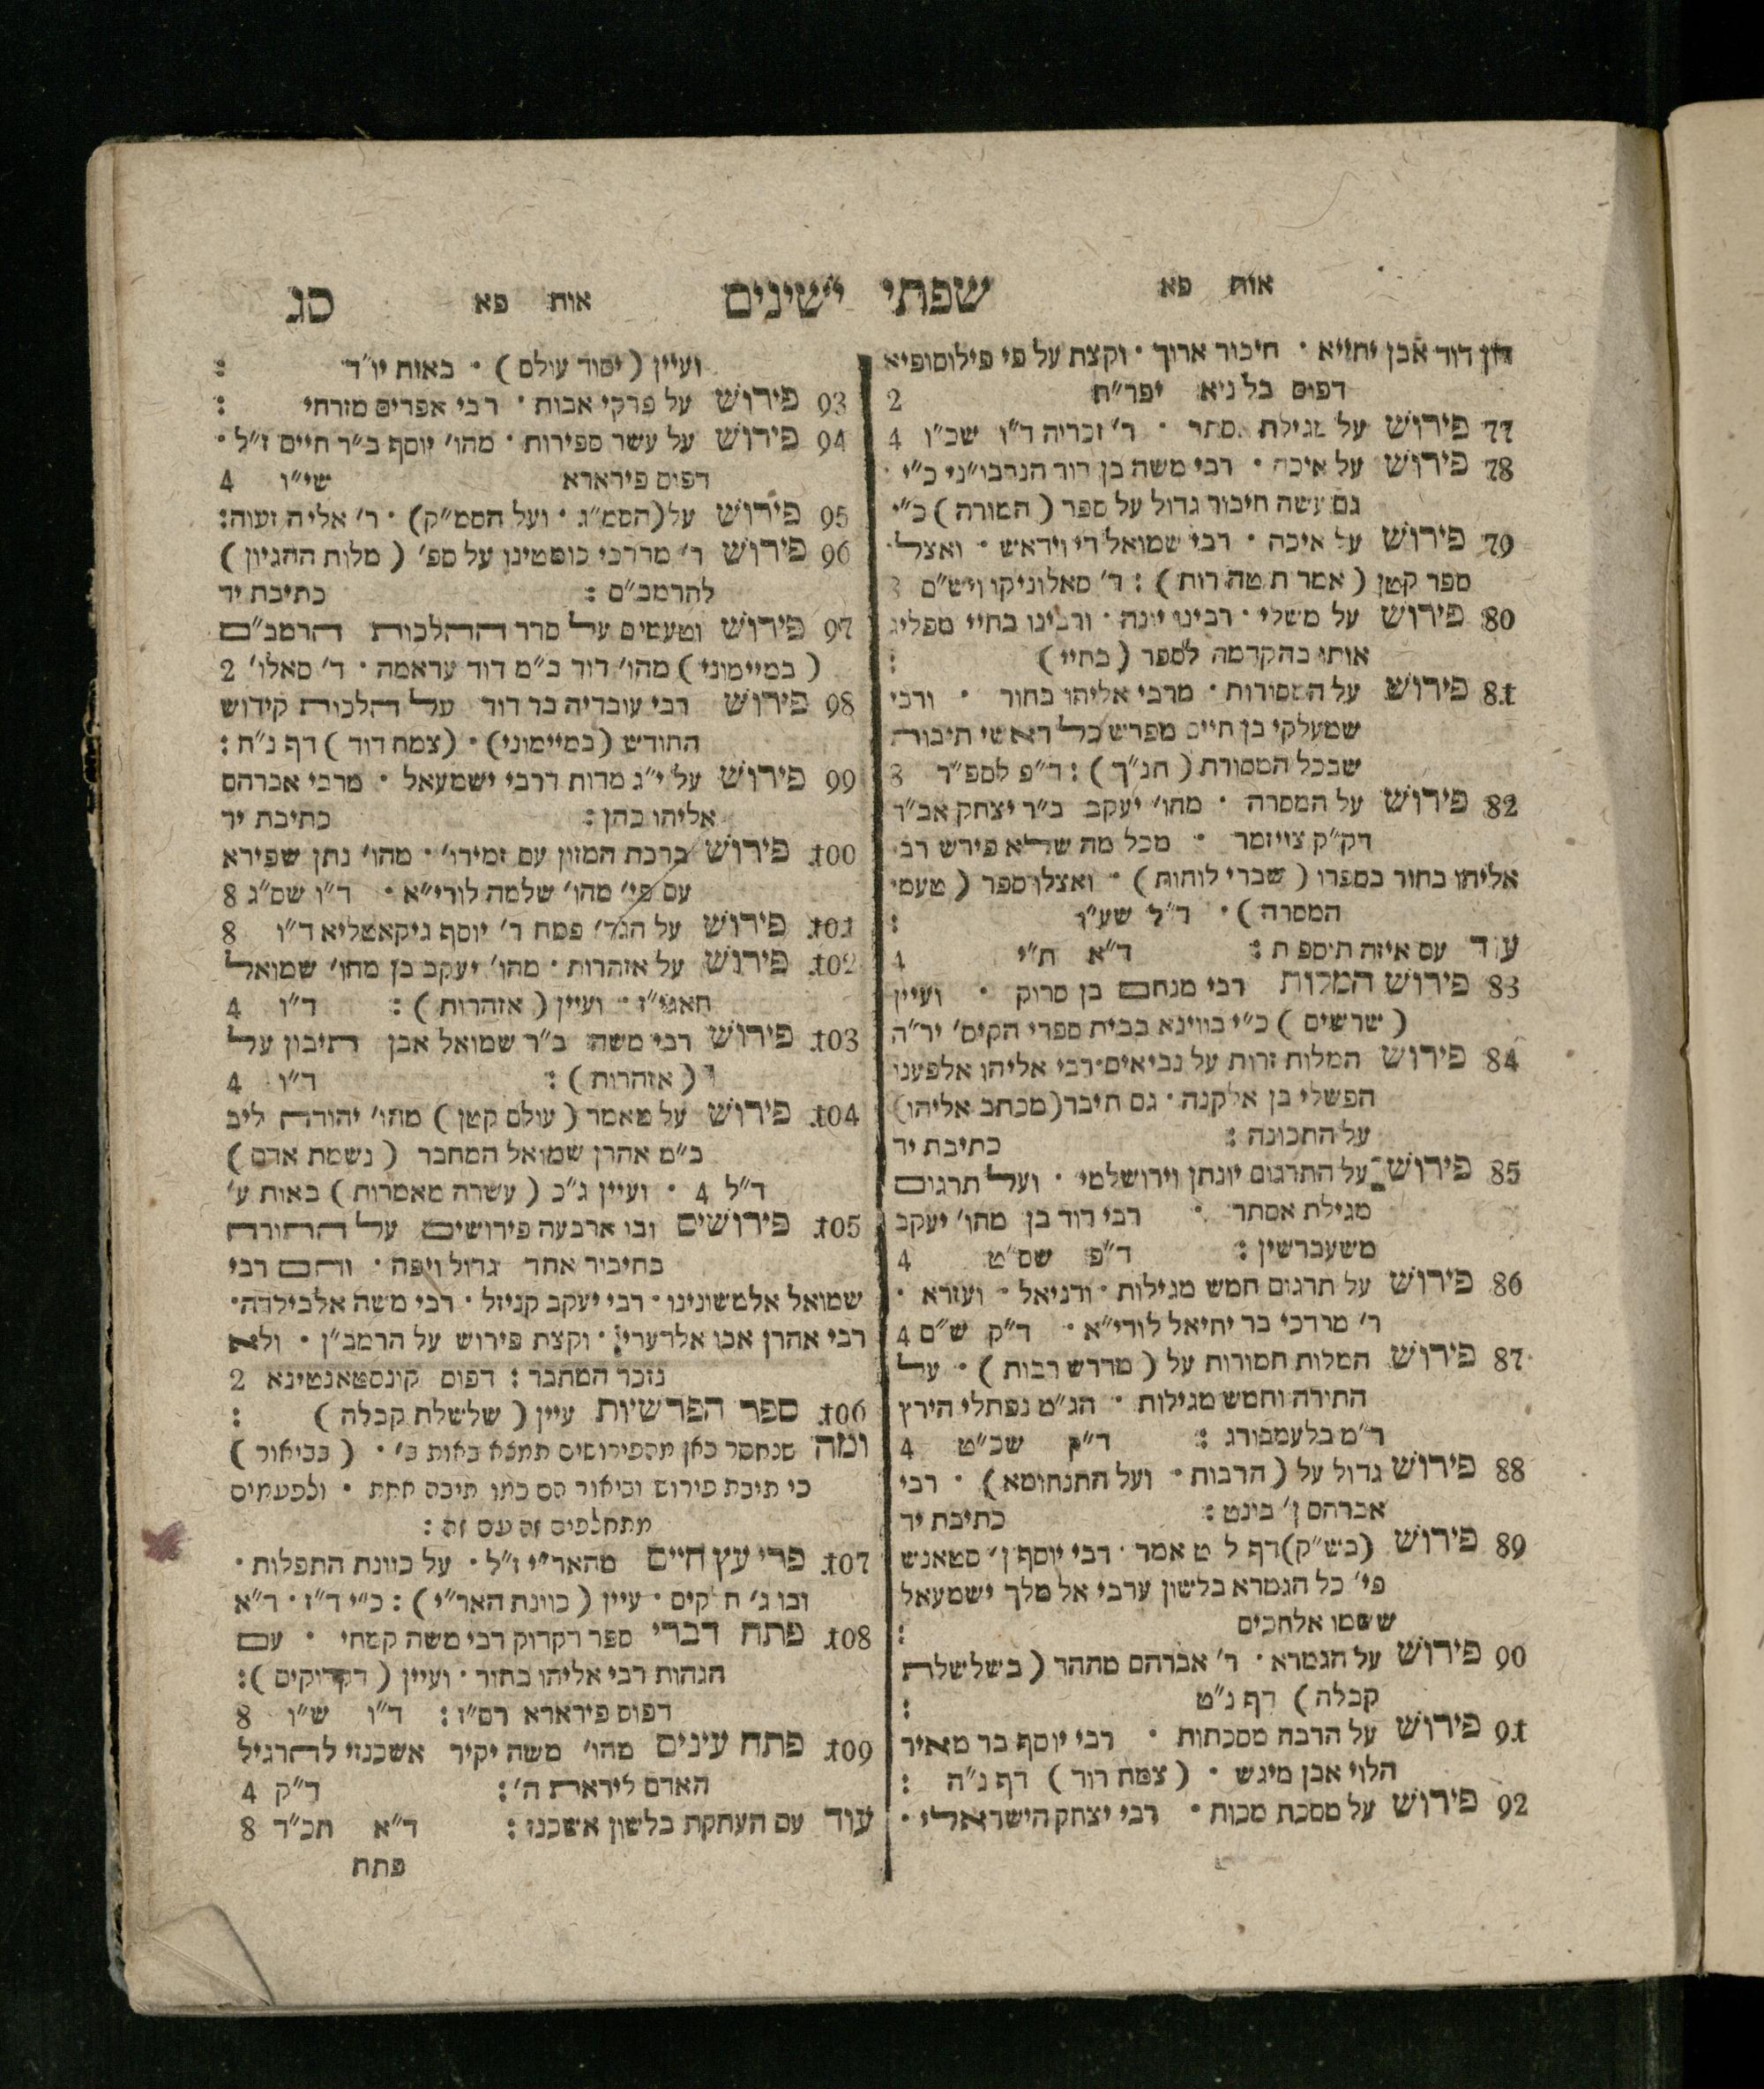 אות פא שפתי ישינים אות פא סג
דון דוד אבן יחייא · חיבור ארוך · וקצת על פי פילוסופיא
דפוס בלניא יפר״ח 2
77 פירוש על מגילת אסתר · ר׳ זכריה ד״ו שכ״ו 4
78 פירוש על איכה · רבי משה בן דוד הנרבו״ני כ״י ·
גם עשה חיבור גדול על ספר ( המורה ) כ״י
79 פירוש על איכה · רבי שמואל די וידאש · ואצל
ספר קטן ( אמרת טהרות ) : ד׳ סאלוניקו ויש״ם 8
80 פירוש על משלי · רבינו יונה · ורבינו בחיי מפליג
אותו בהקדמה לספר ( בחיי ) :
81 פירוש על המסורות · מרבי אליהו בחור · ורבי
שמעלקי בן חיים מפרש כל ראשי תיבות
שבכל המסורת ( תנ״ך ) : ד״פ לספ״ר 8
82 פירוש על המסרה · מהו׳ יעקב ב״ר יצחק אב״ד
דק״ק צויזמר · מכל מה שלא פירש רבי
אליהו בחור בספרו ( שברי לוחות ) · ואצלו ספר ( טעמי
המסרה ) · ד״ל שע״ו :
עוד עם איזה תוספת : ד״א ת״י 4
83 פירוש המלות רבי מנחם בן סרוק · ועיין
( שרשים ) כ״י בווינא בבית ספרי הקיס׳ יר״ה
84 פירוש המלות זרות על נביאים · רבי אליהו אלפענו
הפשלי בן אלקנה · גם חיבר ( מכתב אליהו )
על התכונה : כתיבת יד
85 פירוש על התרגום יונתן וירושלמי · ועל תרגום
מגילת אסתר · רבי דוד בן מהו׳ יעקב
משעברשין : ד״פ שס״ט 4
86 פירוש על תרגום חמש מגילות · ודניאל · ועזרא ·
ר׳ מרדכי בר יחיאל לורי״א · ד״ק ש״ם 4
87 פירוש המלות חמורות על ( מדרש רבות ) · על
התורה וחמש מגילות · הג״מ נפתלי הירץ
ר״מ בלעמבורג : ד״ק שכ״ט 4
88 פירוש גדול על ( הרבות · ועל התנחומא ) · רבי
אברהם ן׳ ביגט : כתיבת יד
89 פירוש ( בש״ק ) דף ל ט אמר · רבי יוסף ן׳ סטאנש
פי׳ כל הגמרא בלשון ערבי אל מלך ישמעאל
ששמו אלחכים :
90 פירוש על הגמרא · ר׳ אברהם מההר ( בשלשלת
קבלה ) דף נ״ט :
91 פירוש על הרבה מסכתות · רבי יוסף בר מאיר
הלוי אבן מיגש · ( צמח דוד ) דף נ״ה :
92 פירוש על מסכת מכות · רבי יצחק הישראלי ·
ועיין ( יסוד עולם ) · באות יו״ד :
93 פירוש על פרקי אבות · רבי אפרים מזרחי :
94 פירוש על עשר ספירות · מהו׳ יוסף ב״ר חיים ז״ל ·
דפוס פירארא שי״ו 4
95 פירוש על ( הסמ״ג · ועל הסמ״ק ) · ר׳ אליה זעוה :
96 פירוש ר׳ מרדכי כומטינו על ספ׳ ( מלות ההגיון )
להרמב״ם : כתיבת יד
97 פירוש וטעמים על סדר ההלכות הרמב״ם
( במיימוני ) מהו׳ דוד ב״מ דוד עראמה · ד׳ סאלו׳ 2
98 פירוש רבי עובדיה בר דוד על הלכות קידוש
החודש ( במיימוני ) · ( צמח דוד ) דף נ״ח :
99 פירוש על י״ג מדות דרבי ישמעאל · מרבי אברהם
אליהו כהן : כתיבת יד
100 פירוש ברכת המזון עם זמירו׳ · מהו׳ נתן שפירא
עם פי׳ מהו׳ שלמה לורי״א · ד״ו שס״ג 8
101 פירוש על הגד׳ פסח ר׳ יוסף גיקאטליא ד״ו 8
102 פירוש על אזהרות · מהו׳ יעקב בן מהו׳ שמואל
חאגי״ז · ועיין ( אזהרות ) : ד״ו 4
103 פירוש רבי משה ב״ר שמואל אבן תיבון על
( אזהרות ) : ד״ו 4
104 פירוש על מאמר ( עולם קטן ) מהו׳ יהודה ליב
ב״מ אהרן שמואל המחבר ( נשמת אדם )
ד״ל 4 · ועיין ג״כ ( עשרה מאמרות ) באות ע׳
105 פירושים ובו ארבעה פירושים על התורה
בחיבור אחד גדול ויפה · והם רבי
שמואל אלמשונינו · רבי יעקב קניזל · רבי משה אלבילדה ·
רבי אהרן אבו אלרערי · וקצת פירוש על הרמב״ן · ולא
נזכר המחבר : דפוס קונסטאנטינא 2
106 ספר הפרשיות עיין ( שלשלת קבלה ) :
ומה שנחסר כאן מהפירושים תמצא באות ב׳ · ( בביאור )
כי תיבת פירוש וביאור הם כמו תיבה אחת · ולפעמים
מתחלפים זה עם זה :
107 פרי עץ חיים מהאר״י ז״ל · על כוונת התפלות ·
ובו ג׳ חלקים · עיין ( כוונת האר״י ) : כ״י ד״ז · ד״א
108 פתח דברי ספר דקדוק רבי משה קמחי · עם
הגהות רבי אליהו בחור · ועיין ( דקדוקים ) :
דפוס פירארא רס״ז : ד״ו ש״ו 8
109 פתח עינים מהו׳ משה יקיר אשכנזי להרגיל
האדם ליראת ה׳ : ד״ק 4
עוד עם העתקת בלשון אשכנז : ד״א תכ״ד 8
פתח